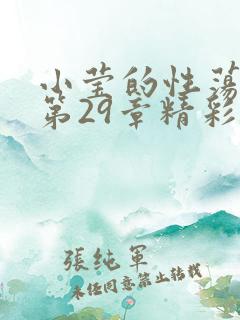 小莹的性荡
第29章精彩
張純軍
未经同意禁止转载